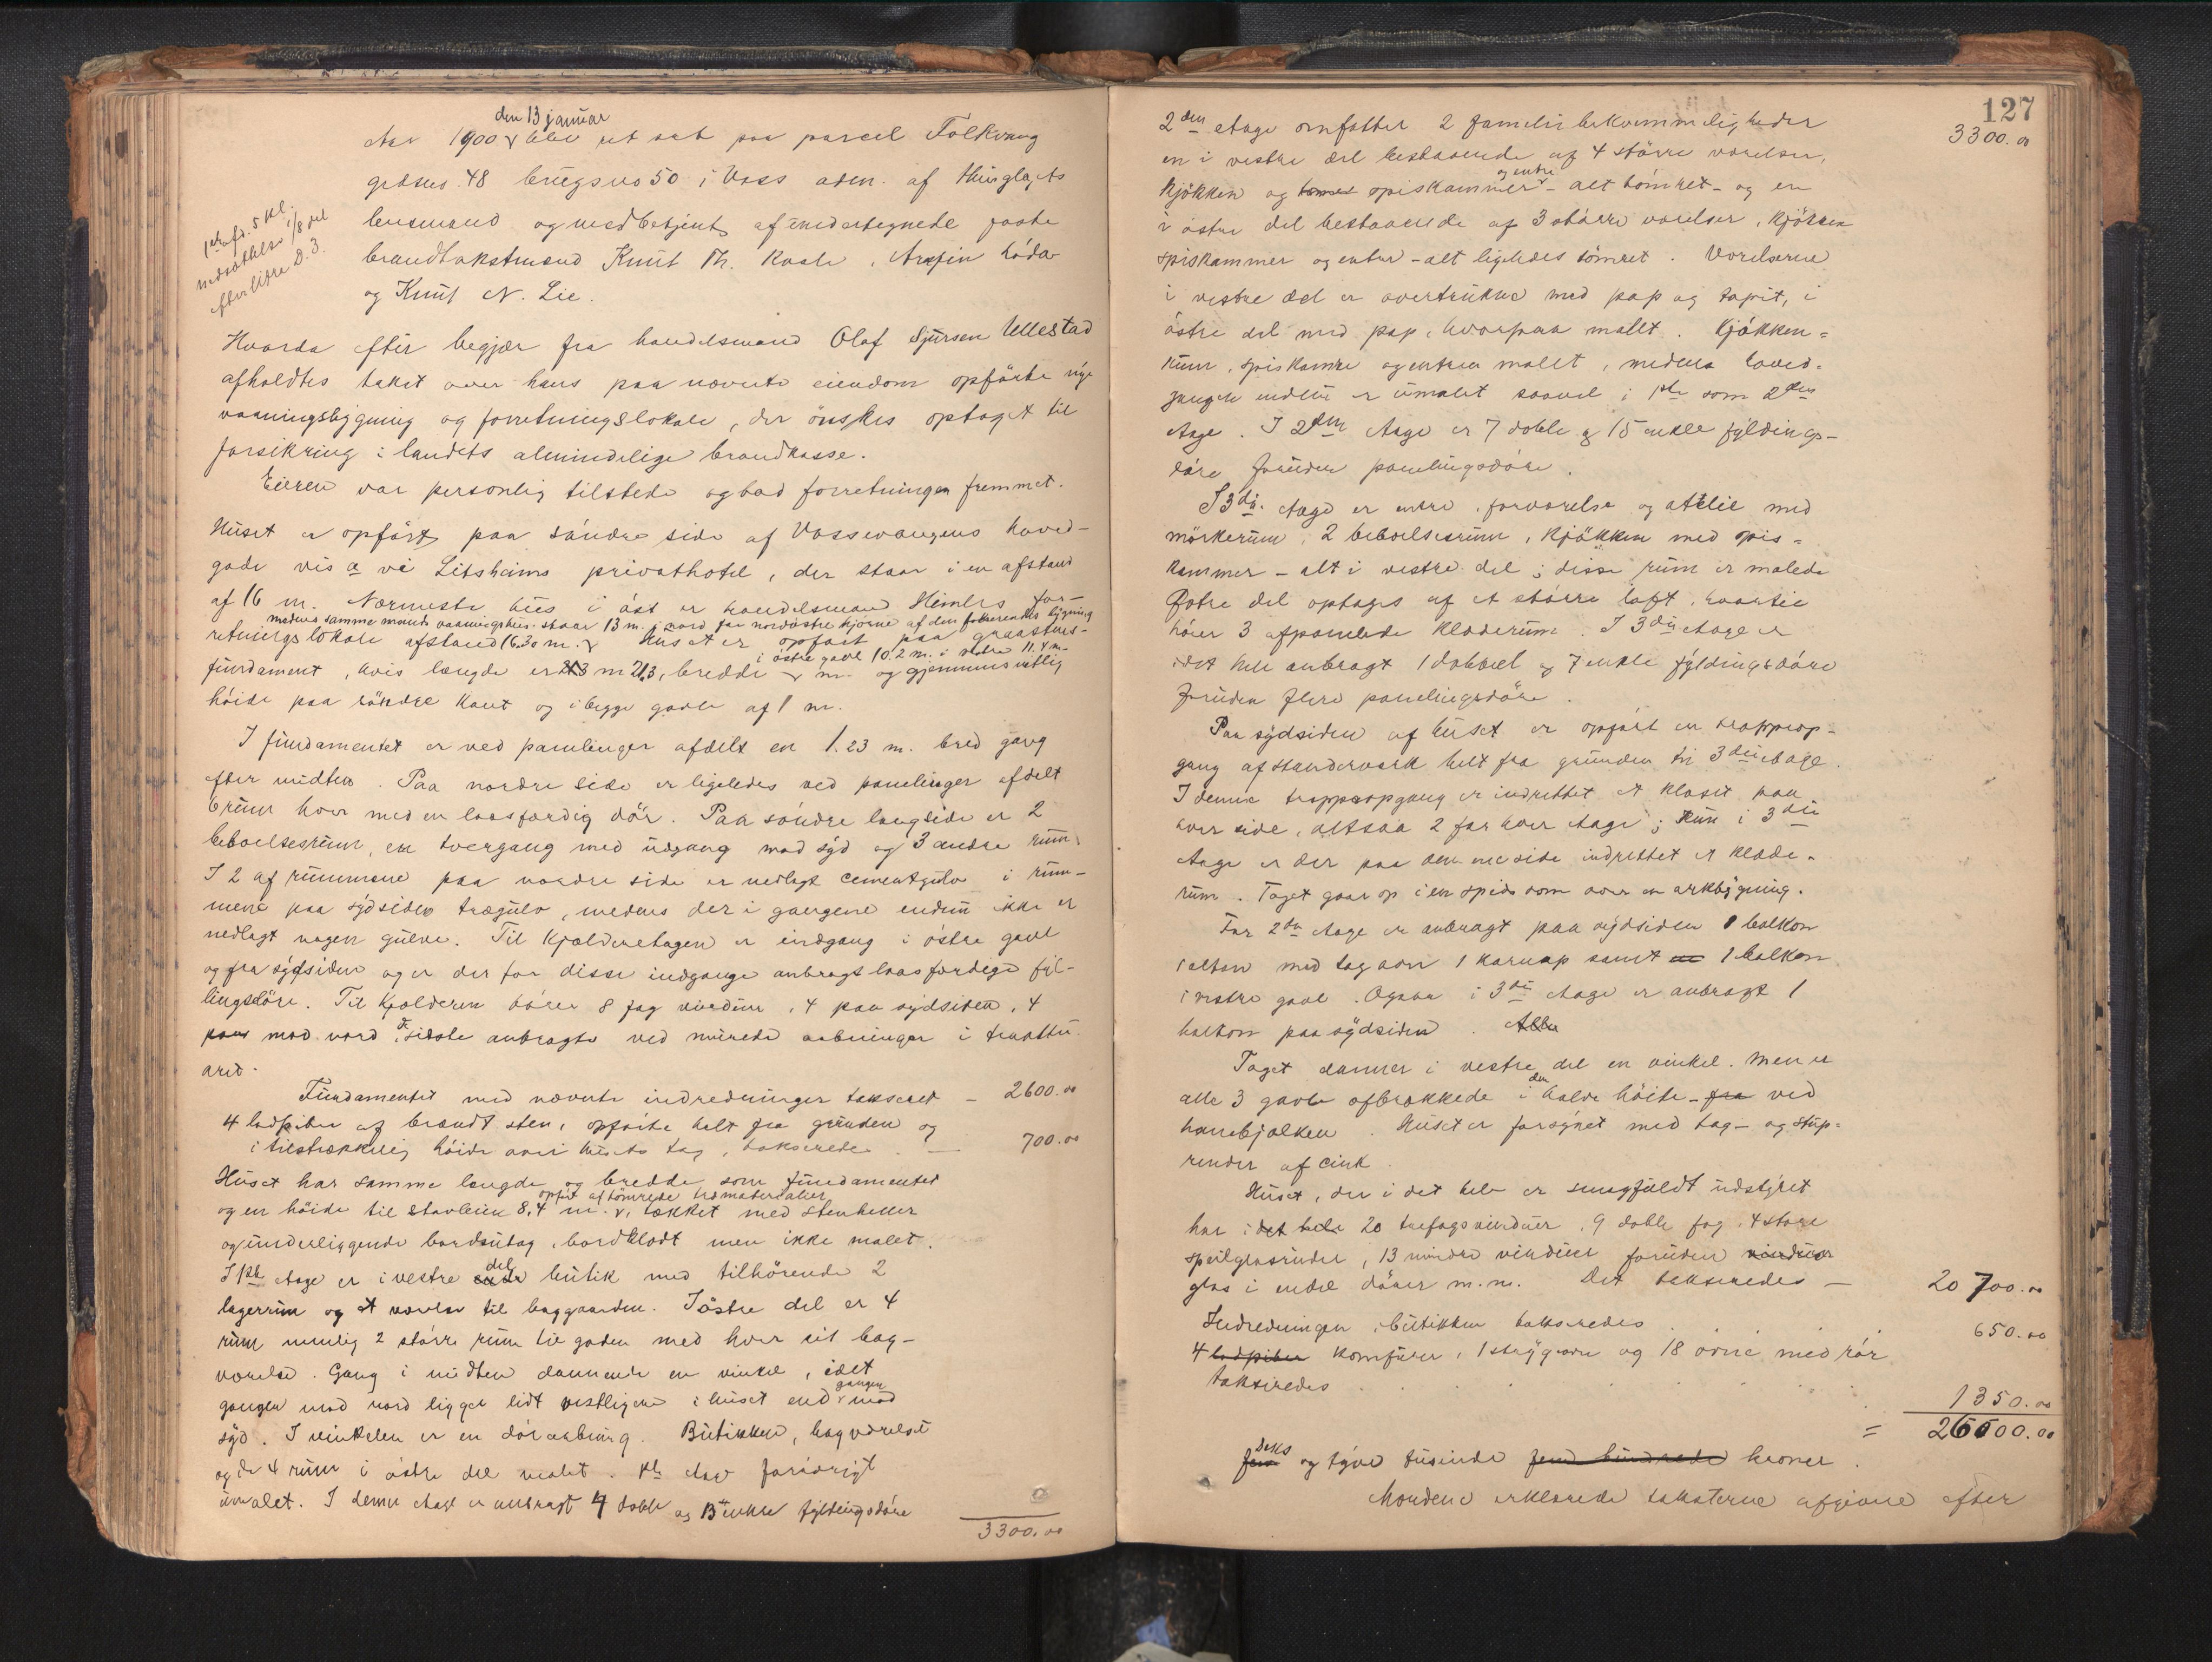 den 13 januar
Aar 1900 blev ret sat paa parcel Folkvang
gdsno. 48 brugsno 50 i Voss adm. af thinglagets
lensmand og medbetjent af undertegnede faste
brandtakstmænd Knut Th. Kaale, Arnfin
og Knut N. Lie.
1ste afd. 5 kl.
nedsættelse 1/8 del
efter litra D. 3.
Hvorda efter begjær fra handelsmand Olaf Sjursen Ullestad
afholdtes takst over hans paa nævnte eiendom opførte nye
vaaningsbygning og forretningslokale, der ønskes optaget til
forsikring i landets almindelige brandkasse.
Eieren var personlig tilstede og bad forretningen fremmet.
Huset er opført paa søndre side af Vossevangens hoved-
gade vis a vi Litsheims privathotel, der staar i en afstand
af 16 m. Nærmeste hus i øst er handelsmand Himles for-
medens samme mands vaaningshus staar 13 m. i nord for nordøstre hjørne af den bygning
retningslokale afstand 16.30 m. Huset er opført paa graastens-
i østre gavl 10.2 m. i vestre 11.4 m.
fundament, hvis længde er 21.3, bredde m. og gjennemsnitlig
høide paa søndre kant og i begge gavle af 1 m.
I fundamentet er ved panelinger afdelt en 1.23 m. bred gang
efter midten. Paa nordre side er ligeledes ved panelinger afdelt
6 rum hver med en laasfærdig dør. Paa søndre langside er 2
beboelsesrum, en tvergang med udgang mod syd og 3 andre rum.
I 2 af rummene paa nordre side er nedlagt cementgulv i rum-
mene paa sydsiden trægulv, medens der i gangene endnu ikke er
nedlagt nogen gulve. Til kjælderetagen er indgang i østre gavl
og fra sydsiden og er der for disse indgange anbragt laasfærdige fyl-
lingsdøre. Til kjælderen hører 8 fag vinduer, 4 paa sydsiden, 4
paa mod nord, de sidste anbragte ved murede aabninger i
Fundamentet med nævnte indredninger takseret – 2600.00
4 ladpiber af brændt sten, opførte helt fra grunden og
i tilstrækkelig høide over husets tag, takseredes – 700.00
Huset har samme længde og bredde som fundamentet
opført af tømrede træmaterialier
og en høide til stavleien 8,4 m., tækket med stenheller
og underliggende bordsutag, bordklædt men ikke malet.
I 1ste etage er i vestre del butik med tilhørende 2
lagerrum og et værelse til baggaarden. I østre del er 4
rum nemlig 2 større rum til gaden med hver sit bag-
værelse. Gang i midten dannende en vinkel, idet
gangen mod nord ligger lidt vestligere i huset end gangen mod
syd. I vinkelen er en døraabning. Butikken, bagværelset
og de 4 rum i østre del malet. 1ste etage forøvrigt
umalet. I denne etage er anbragt 4 doble og 13 enkle fyldingsdøre
3300.00
127
3300.00
2den etage omfatter 2 familiebekvemmeligheder
en i vestre del bestaaende af 4 større værelser,
og entre
kjøkken og spiskammer – alt tømret – og en
i østre del bestaaende af 3 større værelser, kjøkken
spiskammer og entre – alt ligeledes tømret. Værelserne
i vestre del er overtrukne med pap og tapit, i
østre del med pap, hvorpaa malt. Kjøkken-
rum, spiskamre og entreer malet, medens hoved-
gangen endnu er umalet saavel i 1ste som 2den
etage. I 2den etage er 7 doble og 15 enkle fyldings-
døre foruden panelingsdøre.
I 3die etage er entre, forværelse og atelie med
mørkerum, 2 beboelsesrum, kjøkken med spis-
kammer – alt i vestre del; disse rum er malede
Østre del optages af et større loft, hvortil
hører 3 afpanelede klæderum. I 3die etage er
idet hele anbragt 1 dobbel og 7 enkle fyldingsdøre
foruden flere panelingsdøre.
Paa sydsiden af huset er opført en trappeop-
gang af standerverk helt fra grunden til 3die etage.
I denne trappeopgang er indrettet et kloset paa
hver side, altsaa 2 for hver etage; kun i 3die
etage er der paa den ene side indrettet et klæde-
rum. Taget gaar op i en spids som over en arkbygning.
For 2den etage er anbragt paa sydsiden 1 balkon
1 altan med tag over 1 karnap samt 1 balkon
i vestre gavl. Ogsaa i 3die etage er anbragt 1
balkon paa sydsiden. Alle
Taget danner i vestre del en vinkel. Men er
alle 3 gavle afbrækkede i den halve høide – fra ved
hanebjælken. Huset er forsynet med tag- og stup-
render af cink.
Huset, der i det hele er smagfuldt udstyret
har i det hele 20 trefagsvinduer, 9 doble fag, 4 store
speilglasruder, 13 mindre vinduer foruden vinduer
glas i endel dører m.m. Det takseredes – 20700.00
Indredningen i butikken takseredes . . . 650.00
4 ladpiber komfurer, 1 strygeovn og 18 ovne med rør
takseredes . . . . . . 1350.00
= 26000.00
seks
fem og tyve tusinde fem hundrede kroner.
Mændene erklærede taksterne afgivne efter